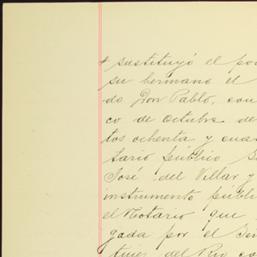 sustituyó el po
su hermano el
do Don Pablo, con
co de Octubre de
tos ochenta y cua
tario público
José del Villar y
instrumento públi
el Notario que
gada por el
del Rio co